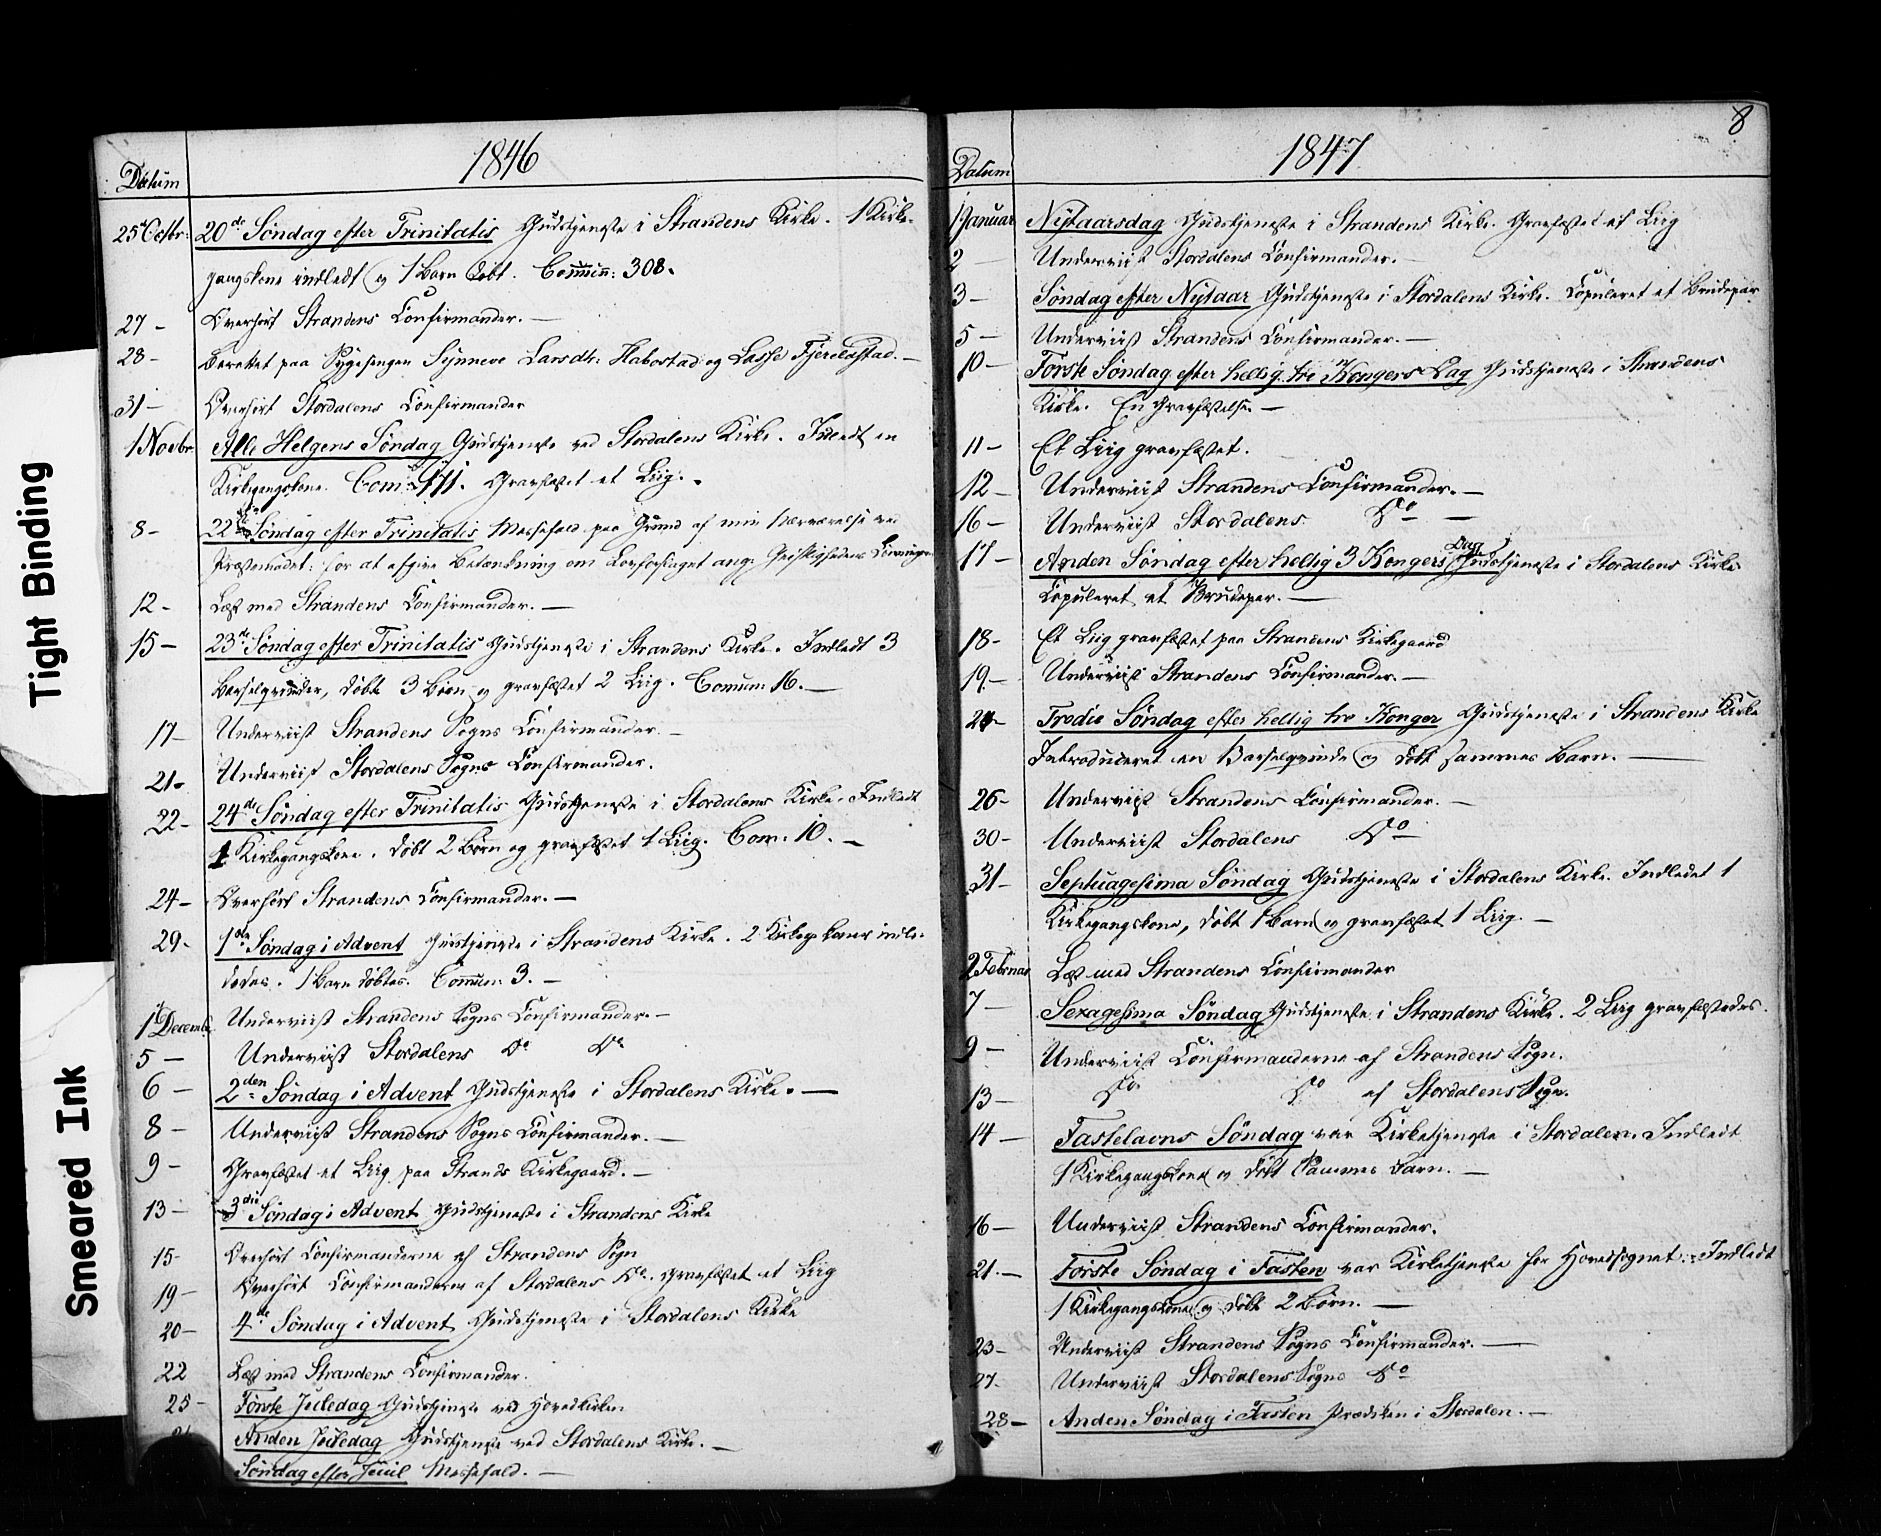 Tight Binding
Smeared Ink
1846
Datum
25 Octbr: 20de Søndag efter Trinitatis Gudstjeneste i Strandens Kirke. 1 Kirke-
gangskone indledt og 1 Barn døbt. Commun: 308.
27 - Overhørt Strandens Confirmander. -
28 - Berettet paa Sygesengen Synneve Larsdtr: Habostad og Lasse Fjerelastad. -
31 - Overhørt Stordalens Confirmander
1 Novbr Alle Helgens Søndag Gudstjeneste ved Stordalens Kirke. Indledt en
Kirkegangskone. Com: 171. Gravfæstet et Liig. -
8 - 22de Søndag efter Trinitatis Messefald paa Grund af min Nærværelse ved
Præstemødet: for at afgive Betænkning om Lovforslaget ang: Geistlighedens Lønninger
12 - Læst med Strandens Confirmander. -
15 - 23de Søndag efter Trinitatis Gudstjeneste i Strandens Kirke. Indledt 3
Barselqvinder, døbt 3 Børn og gravfæstet 2 Liig. Comun: 16. -
17 - Underviist Strandens Sogns Confirmander. -
21 - Underviist Stordalens Sogns Confirmander.
22 - 24de Søndag efter Trinitatis Gudstjeneste i Stordalens Kirke. Indledt
1 Kirkegangskone. døbt 2 Børn og gravfæstet 1 Liig. Com: 10. -
24 - Overhørt Strandens Confirmander. -
29 - 1ste Søndag i Advent Gudstjeneste i Strandens Kirke. 2 Kirkeg. koner indle-
dedes. 1 Barn døbtes. Commun: 3. -
1 Decemb. Underviist Strandens Sogns Confirmander. -
5 - Underviist Stordalens Do Do
6 - 2den Søndag i Advent Gudstjeneste i Stordalens Kirke. -
8 - Underviist Strandens Sogns Confirmander. -
9 - Gravfæstet et Liig paa Strands Kirkegaard. -
13 - 3die Søndag i Advent Gudstjeneste i Strandens Kirke
15 - Overhørt Confirmanderne af Strandens Sogn
19 - Overhørt Confirmanderne af Stordalens Do. gravfæstet et Liig
20 - 4de Søndag i Advent Gudstjeneste i Stordalens Kirke
22 Læst med Strandens Confirmander.
25 - Første Juledag Gudstjeneste ved Hovedkirken
Anden Juledag Gudstjeneste ved Stordalens Kirke. -
Søndag efter Juul Messefald. -
8
1847
Datum
1 Januar Nytaarsdag Gudstjeneste i Strandens Kirke. Gravfæstet et Liig
2 - Underviist Stordalens Confirmander. -
3 - Søndag efter Nytaar Gudstjeneste i Stordalens Kirke. Copuleret et Brudepar
5 - Underviist Strandens Confirmander. -
10 - Første Søndag efter hellig tre Kongers Dag Gudstjeneste i Strandens
Kirke. En Gravfæstelse. -
11 - Et Liig gravfæstet.
12 - Underviist Strandens Confirmander. -
16 - Underviist Stordalens Do -
17 - Anden Søndag efter hellig 3 Kongers Dag Gudstjeneste i Stordalens Kirke
Copuleret et Brudepar. -
18 - Et Liig gravfæstet paa Strandens Kirkegaard
19 - Underviist Strandens Confirmander. -
24 - Tredie Søndag efter hellig tre Konger Gudstjeneste i Strandens Kirke
Introduceret en Barselqvinde og døbt sammes Barn. -
26 - Underviist Strandens Confirmander. -
30 - Underviist Stordalens Do
31 - Septuagesima Søndag Gudstjeneste i Stordalens Kirke. Indledet 1
Kirkegangskone, døbt 1 Barn og gravfæstet 1 Liig. -
2 Februar Læst med Strandens Confirmander
7 - Sexagesima Søndag Gudstjeneste i Strandens Kirke. 2 Liig gravfæstedes.
9 - Underviist Confirmanderne af Strandens Sogn.
13 - Do Do af Stordalens Sogn.
14 - Fastelavns Søndag var Kirketjeneste i Stordalen. Indledt
1 Kirkegangskone og døbt Sammes Barn. -
16 - Underviist Strandens Confirmander.
21 - Første Søndag i Fasten var Kirketjeneste for Hovedsognet. Indledt
1 Kirkegangskone og døbt 2 Børn. -
23 - Underviist Strandens Sogns Confirmander. -
27 - Underviist Stordalens Sogns Do
28 - Anden Søndag i Fasten Prædiken i Stordalen. -